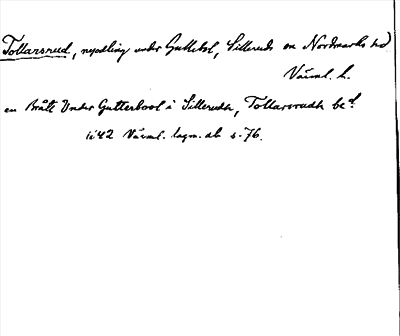 Tollarsrud, nyodling under Guttebol, Silleruds sn Nordmarks hd
Värml. l.
en Brått Under Gutterbool i Sillerudh, Tollarsrudh be:d
1642 Värml. lagm. db s. 76.